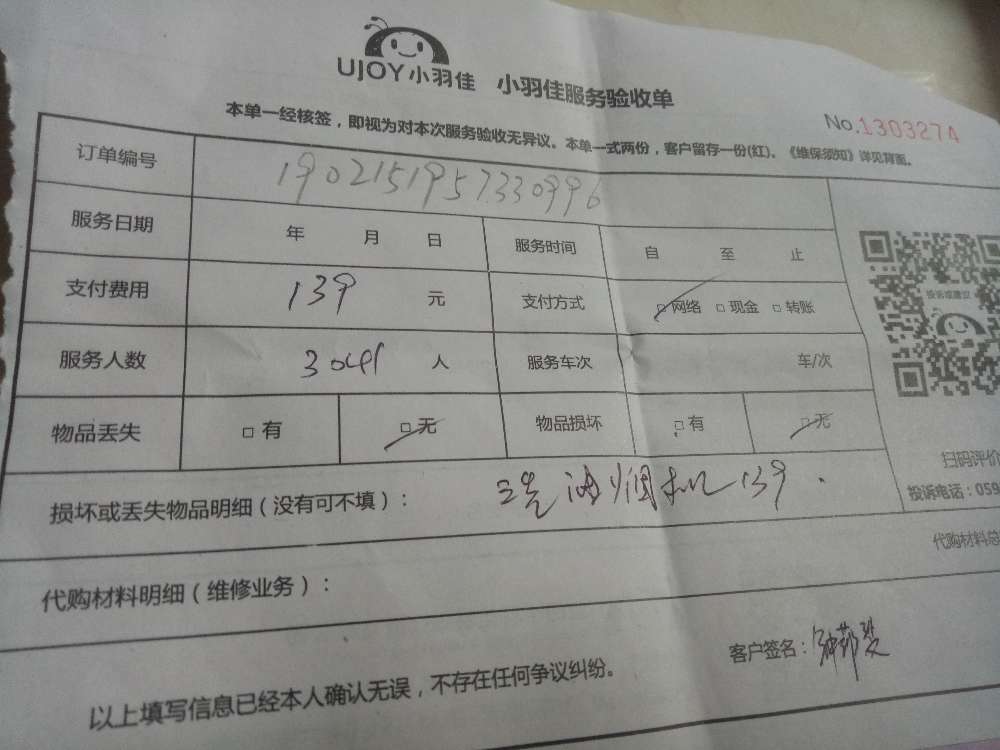 UJOY小羽佳 小羽佳服务验收单
No.1303274
本单一经核签，即视为对本次服务验收无异议。本单一式两份，客户留存一份(红)。《维保须知》详见背面。
订单编号 1902151957330996
服务日期 年 月 日 服务时间 自 至 止
支付费用 139 元 支付方式 □网络 □现金 □转账
服务人数 3041 人 服务车次 车/次
物品丢失 □有 □无 物品损坏 □有 □无
投诉或建议
扫码评价
投诉电话：059
损坏或丢失物品明细（没有可不填）： 洗油烟机139.
代购材料总
代购材料明细（维修业务）：
客户签名：
以上填写信息已经本人确认无误，不存在任何争议纠纷。